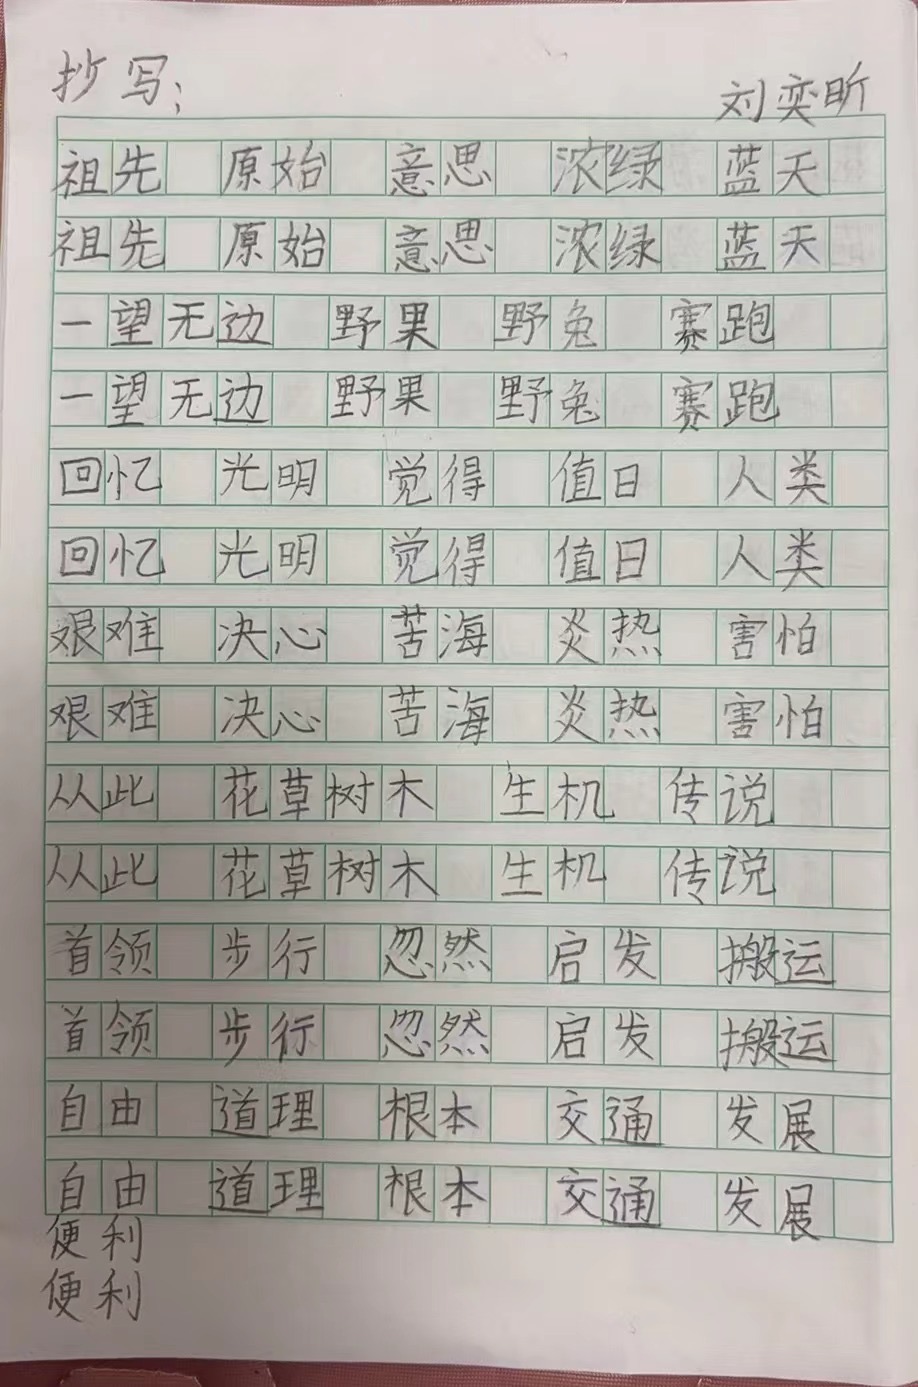 抄写：
刘奕昕
祖先 原始 意思 浓绿 蓝天
祖先 原始 意思 浓绿 蓝天
一望无边 野果 野兔 赛跑
一望无边 野果 野兔 赛跑
回忆 光明 觉得 值日 人类
回忆 光明 觉得 值日 人类
艰难 决心 苦海 炎热 害怕
艰难 决心 苦海 炎热 害怕
从此 花草树木 生机 传说
从此 花草树木 生机 传说
首领 步行 忽然 启发 搬运
首领 步行 忽然 启发 搬运
自由 道理 根本 交通 发展
自由 道理 根本 交通 发展
便利
便利